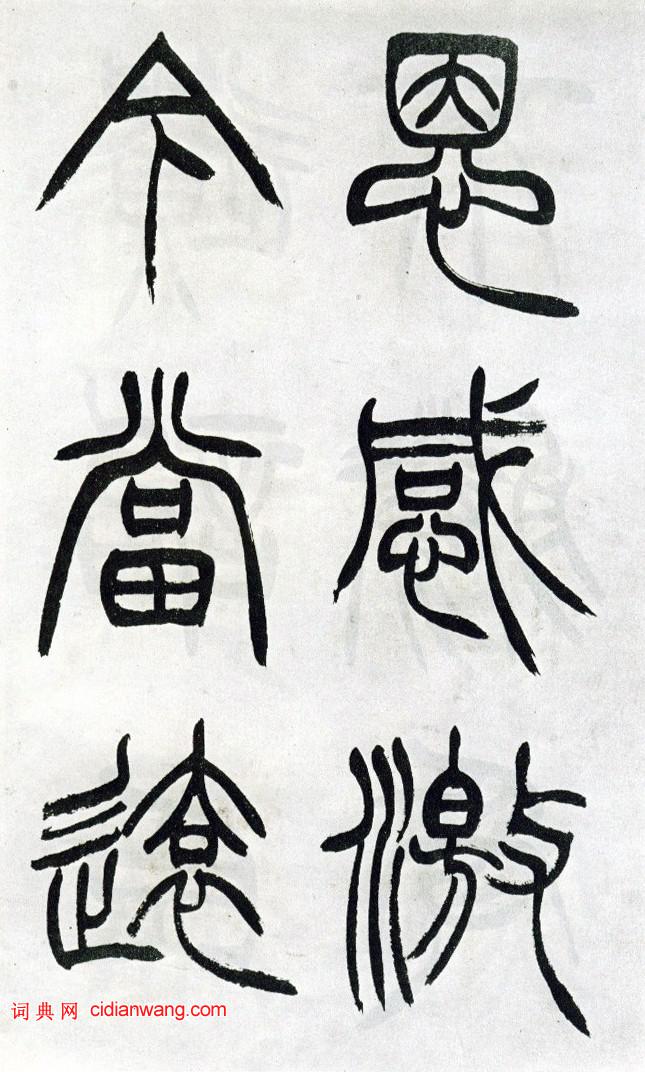 恩感激
今當遠
词典网 cidianwang.com